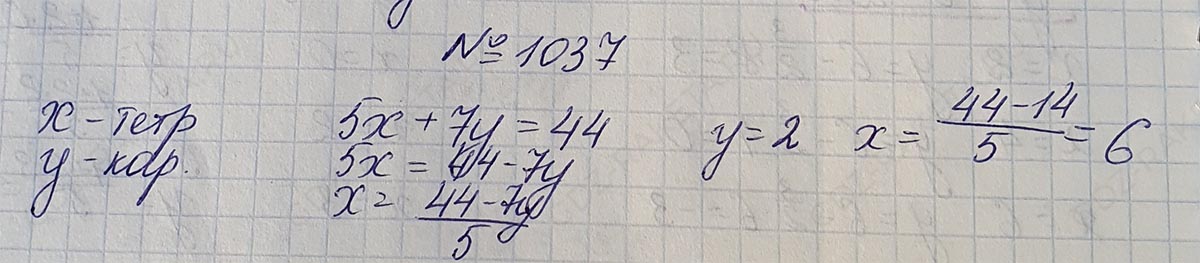 № 1037
x - тетр
y - кар.
5x + 7y = 44
5x = 44 - 7y
x = (44 - 7y)/5
y = 2 x = (44 - 14)/5 = 6